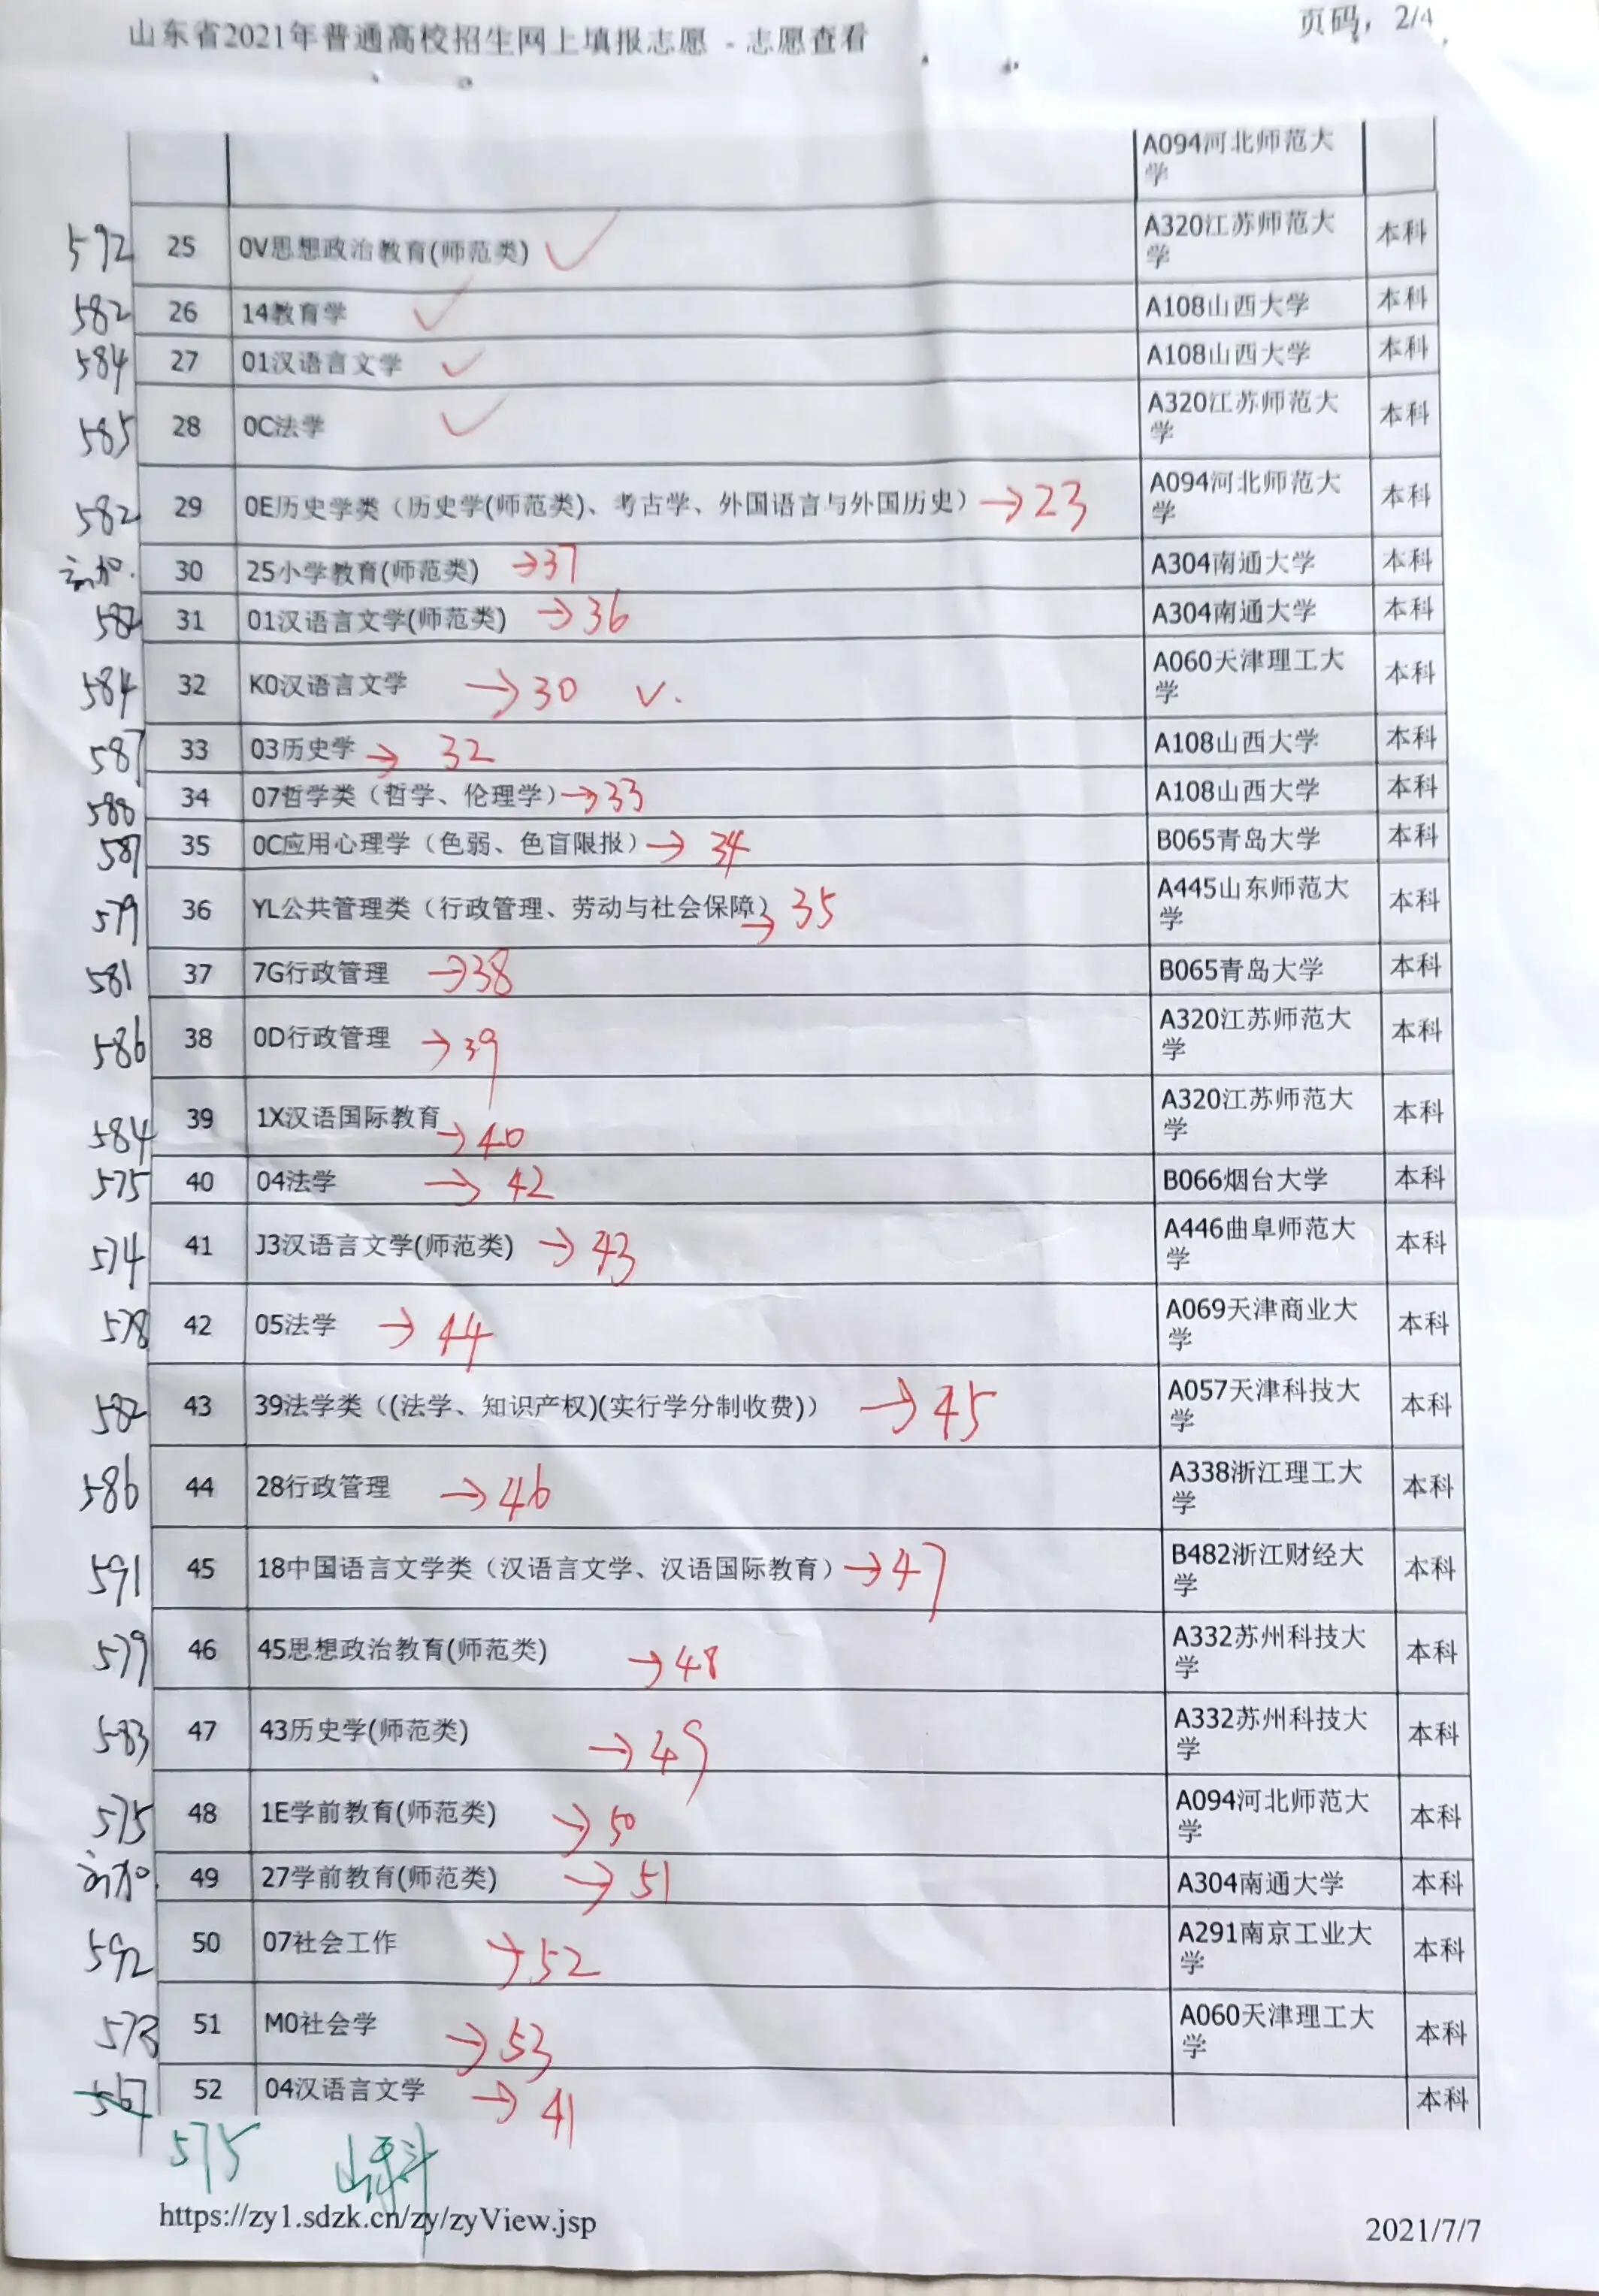 山东省2021年普通高校招生网上填报志愿 - 志愿查看 页码，2/4
A094河北师范大
学
592 25 0V思想政治教育(师范类) ✓ A320江苏师范大学 本科
582 26 14教育学 ✓ A108山西大学 本科
584 27 01汉语言文学 ✓ A108山西大学 本科
585 28 0C法学 ✓ A320江苏师范大学 本科
582 29 0E历史学类（历史学(师范类)、考古学、外国语言与外国历史） →23 A094河北师范大学 本科
新加. 30 25小学教育(师范类) →37 A304南通大学 本科
582 31 01汉语言文学(师范类) →36 A304南通大学 本科
584 32 K0汉语言文学 →30 ✓. A060天津理工大学 本科
587 33 03历史学 → 32 A108山西大学 本科
580 34 07哲学类（哲学、伦理学） →33 A108山西大学 本科
587 35 0C应用心理学（色弱、色盲限报） → 34 B065青岛大学 本科
579 36 YL公共管理类（行政管理、劳动与社会保障） → 35 A445山东师范大学 本科
581 37 7G行政管理 →38 B065青岛大学 本科
586 38 0D行政管理 →39 A320江苏师范大学 本科
584 39 1X汉语国际教育 →40 A320江苏师范大学 本科
575 40 04法学 → 42 B066烟台大学 本科
574 41 J3汉语言文学(师范类) →43 A446曲阜师范大学 本科
578 42 05法学 → 44 A069天津商业大学 本科
582 43 39法学类（(法学、知识产权)(实行学分制收费)） →45 A057天津科技大学 本科
586 44 28行政管理 →46 A338浙江理工大学 本科
591 45 18中国语言文学类（汉语言文学、汉语国际教育） →47 B482浙江财经大学 本科
579 46 45思想政治教育(师范类) →48 A332苏州科技大学 本科
583 47 43历史学(师范类) →49 A332苏州科技大学 本科
575 48 1E学前教育(师范类) →50 A094河北师范大学 本科
新加. 49 27学前教育(师范类) →51 A304南通大学 本科
592 50 07社会工作 →52 A291南京工业大学 本科
573 51 M0社会学 →53 A060天津理工大学 本科
567 52 04汉语言文学 → 41 本科
575 山科
https://zy1.sdzk.cn/zy/zyView.jsp 2021/7/7